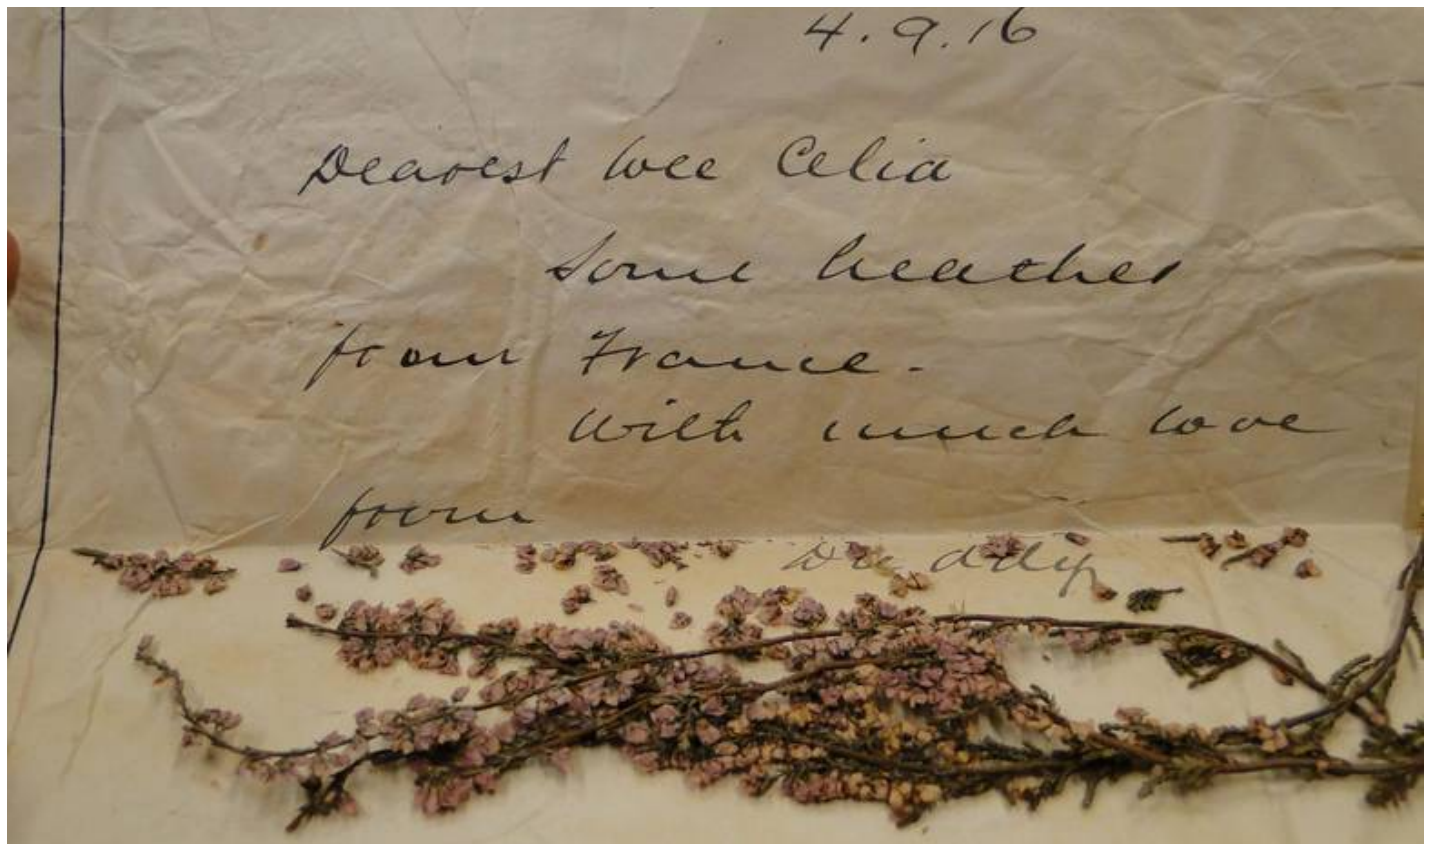 4.9.16
Dearest wee Celia
Some heather
from France.
With much love
from
Daddy